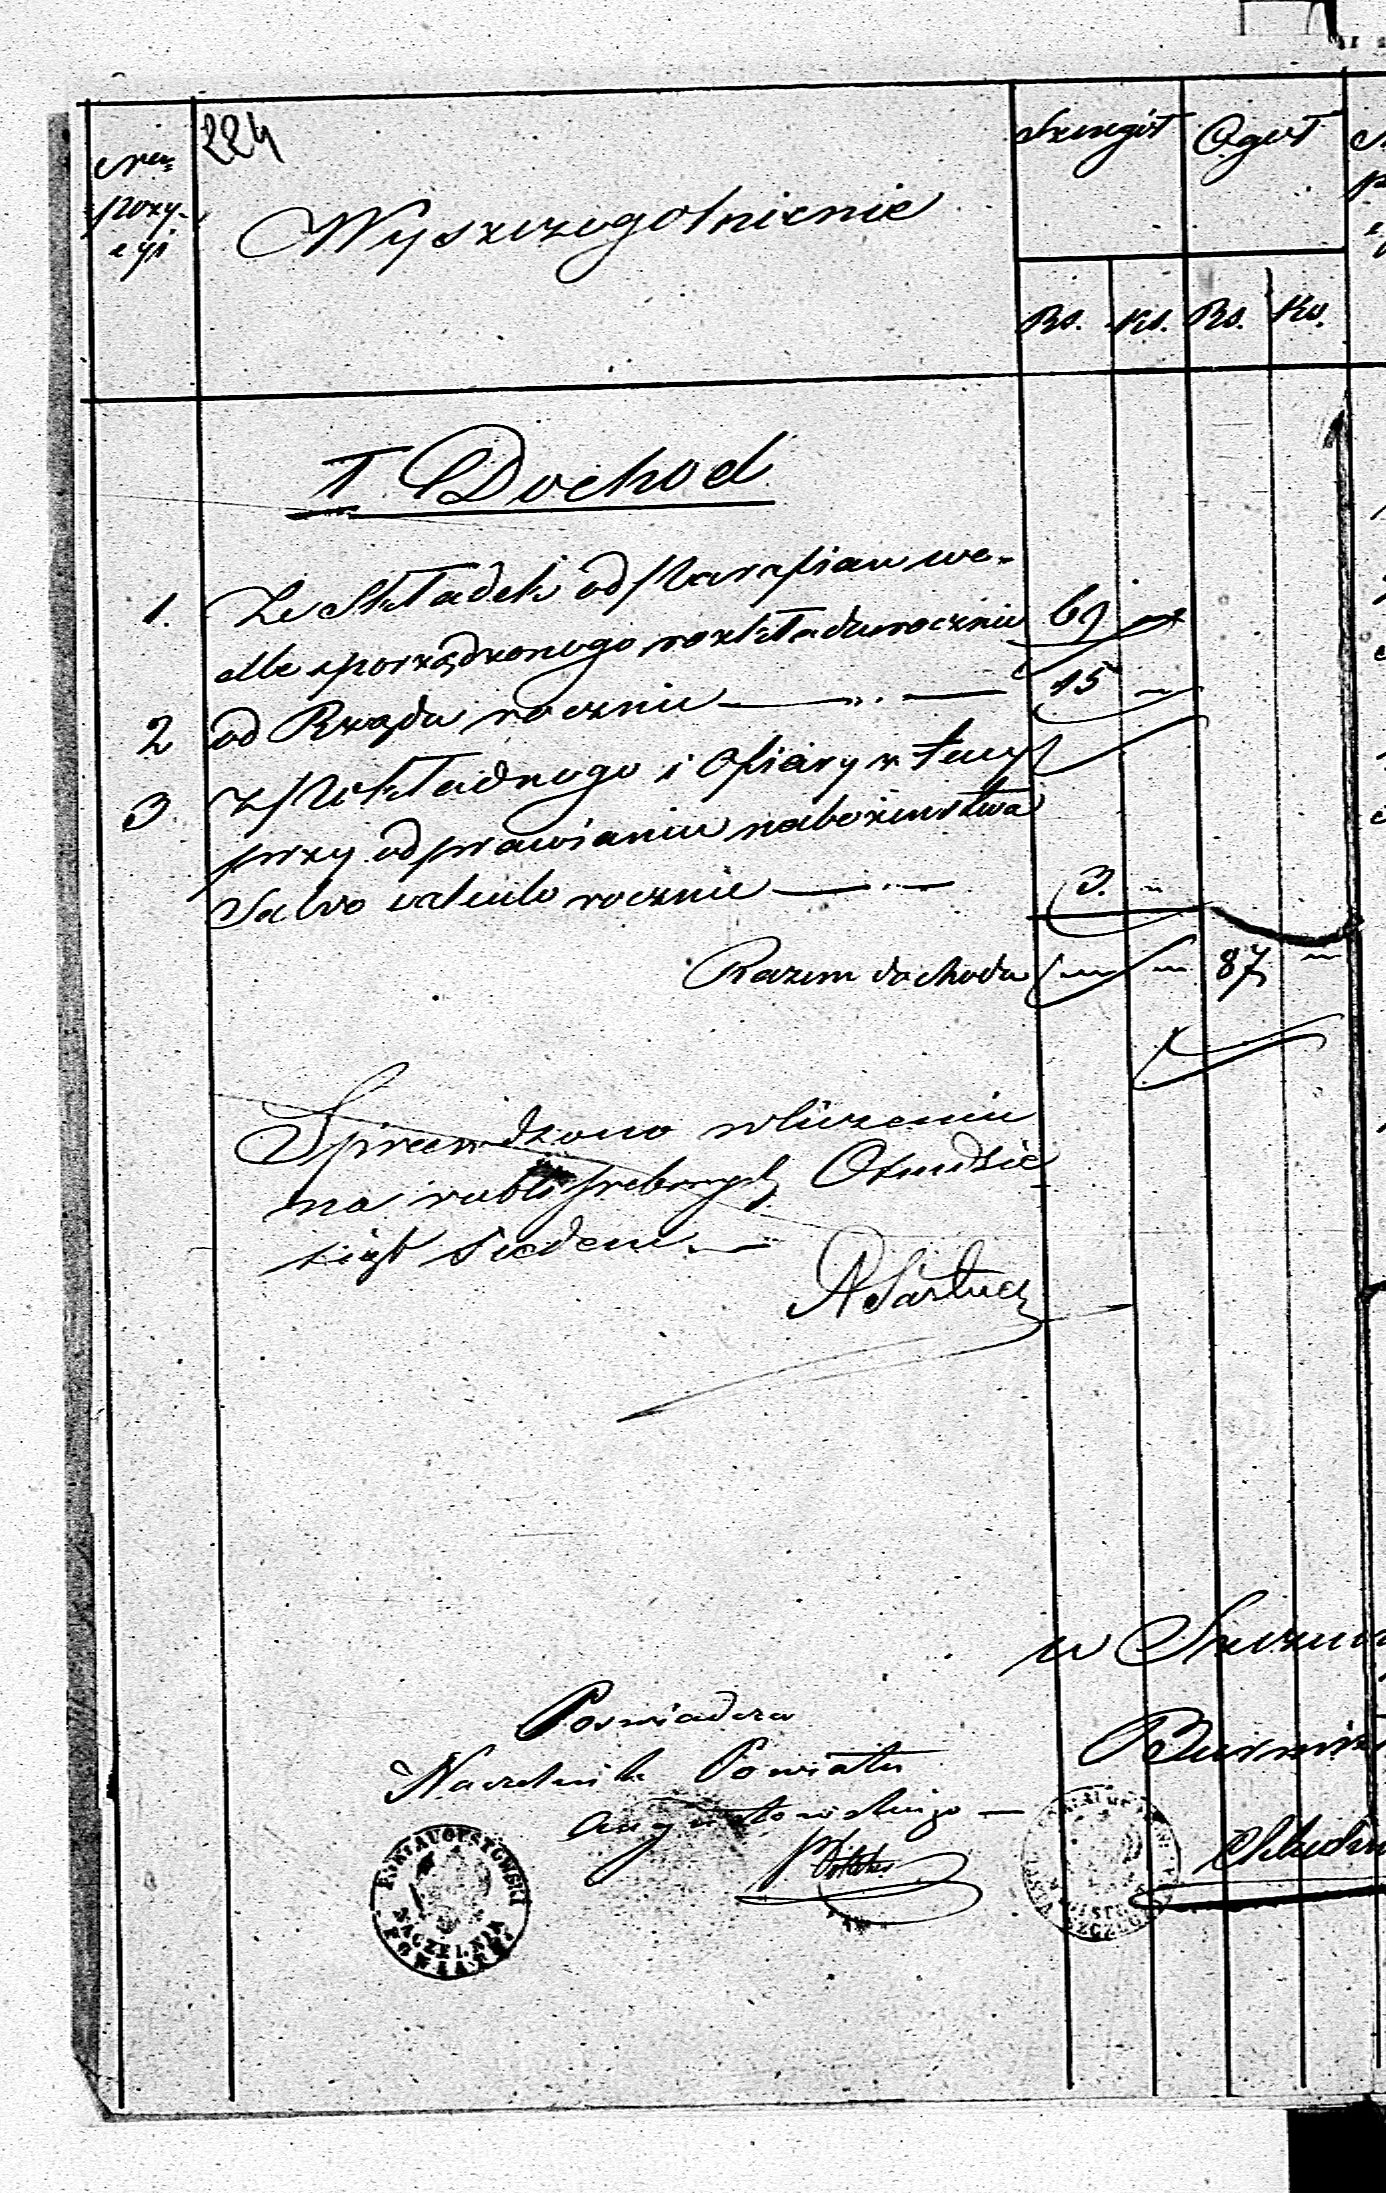 224
Nru
pozy-
cyi
Wyszczegolnienie
Szczegół
Ogół
Rs. Ks. Rs. Ks.
I. Dochod
1. Ze Składek od Parafian we-
dle sporządzonego rozkładu rocznie 69 „
2 od Rządu rocznie 15 „
3. Z Pokładnego i Ofiary z tacy
przy odprawianiu nabożeństwa
Salvo calculo rocznie 3. „
Razem dochodu „ „ 87 „
Sprawdzono w liczeniu
na rubli srebrnych Ośmdzie
siąt siedem
w
Poswiadcza
Naczelnik Powiatu
Augustowskiego
Burmist
POWIAT AUGUSTOWSKI
NACZELNIK
POWIATU